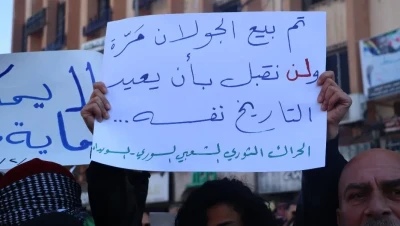 تم بيع الجولان مَرّة
ولن نقبل بأن يعيد
التاريخ نفسه...
الحراك الثوري الشعبي السوري - السويداء